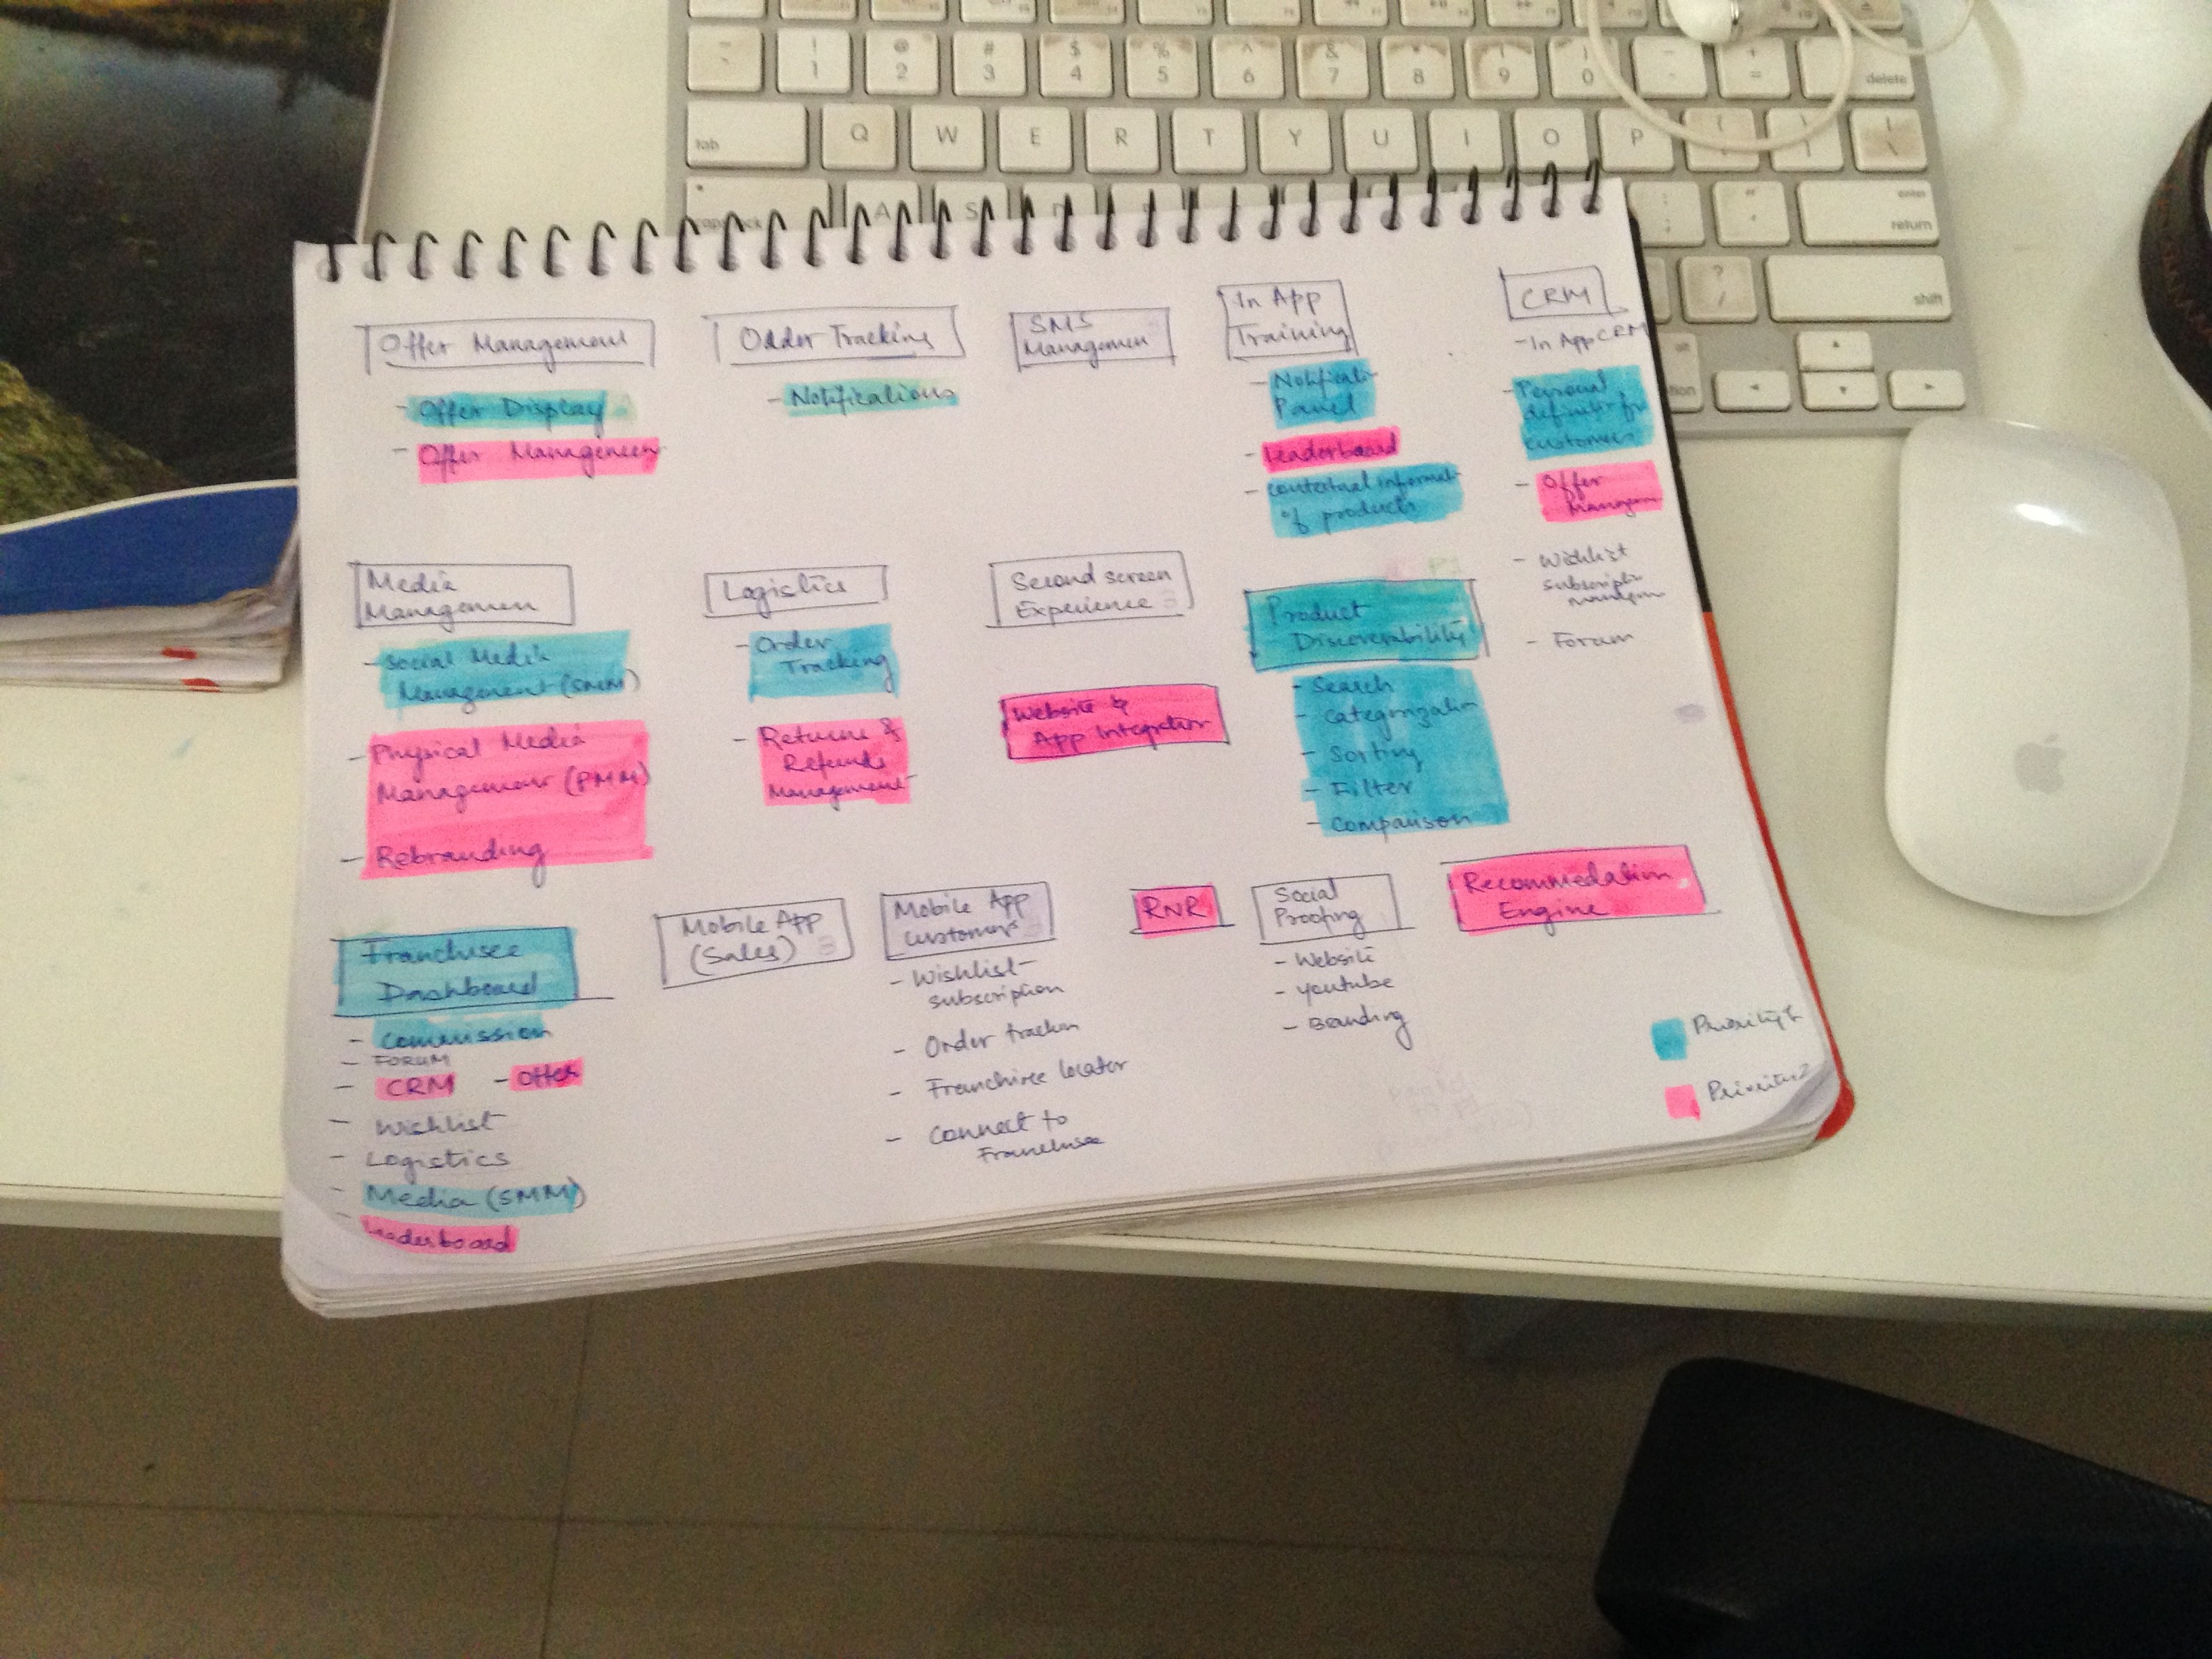 Offer Management
- Offer Display
- Offer Managemen
Odder Tracking
- Notifications
SMS
Managemen
In App
Training
- Notificati
Panel
- Leaderboard
- contextual informat
of products
CRM
- In App CRM
- Personal
customers
- Offer
Managem
- Wishlist
- Forum
Media
Managemen
- Social Media
Management (SMM)
- Physical Media
Management (PMM)
- Rebranding
Logistics
- Order
Tracking
- Returns &
Refunds
Management
Second screen
Experience
Website &
App Integration
P1
Product
Discoverability
- Search
- Categorization
- Sorting
- Filter
- Comparison
Franchisee
Dashboard
- Commission
- FORUM
- CRM - Offer
- Wishlist
- Logistics
- Media (SMM)
- Leaderboard
Mobile App
(Sales)
Mobile App
Customers
- Wishlist
subscription
- Order tracker
- Franchisee locator
- Connect to
Franchisee
RNR
Social
Proofing
- Website
- Youtube
- Branding
Recommedation
Engine
Priority 1
Priority 2
~
! 1
@ 2
# 3
$ 4
% 5
^ 6
& 7
* 8
( 9
) 0
- + =
delete
tab
Q W E R T Y U I O P
{ } | \
A S
enter
return
? /
shift
alt